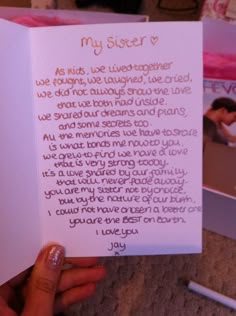 My Sister ♡
As kids, we lived together
we fought, we laughed, we cried,
we did not always show the love
that we both had inside.
we shared our dreams and plans,
and some secrets too.
All the memories we have to share
is what bonds me now to you.
we grew to find we have a love
that is very strong today.
it's a love shared by our family
that will never fade away.
you are my sister not by choice,
but by the nature of our birth.
I could not have chosen a better one
you are the BEST on Earth.
I love you
Jay